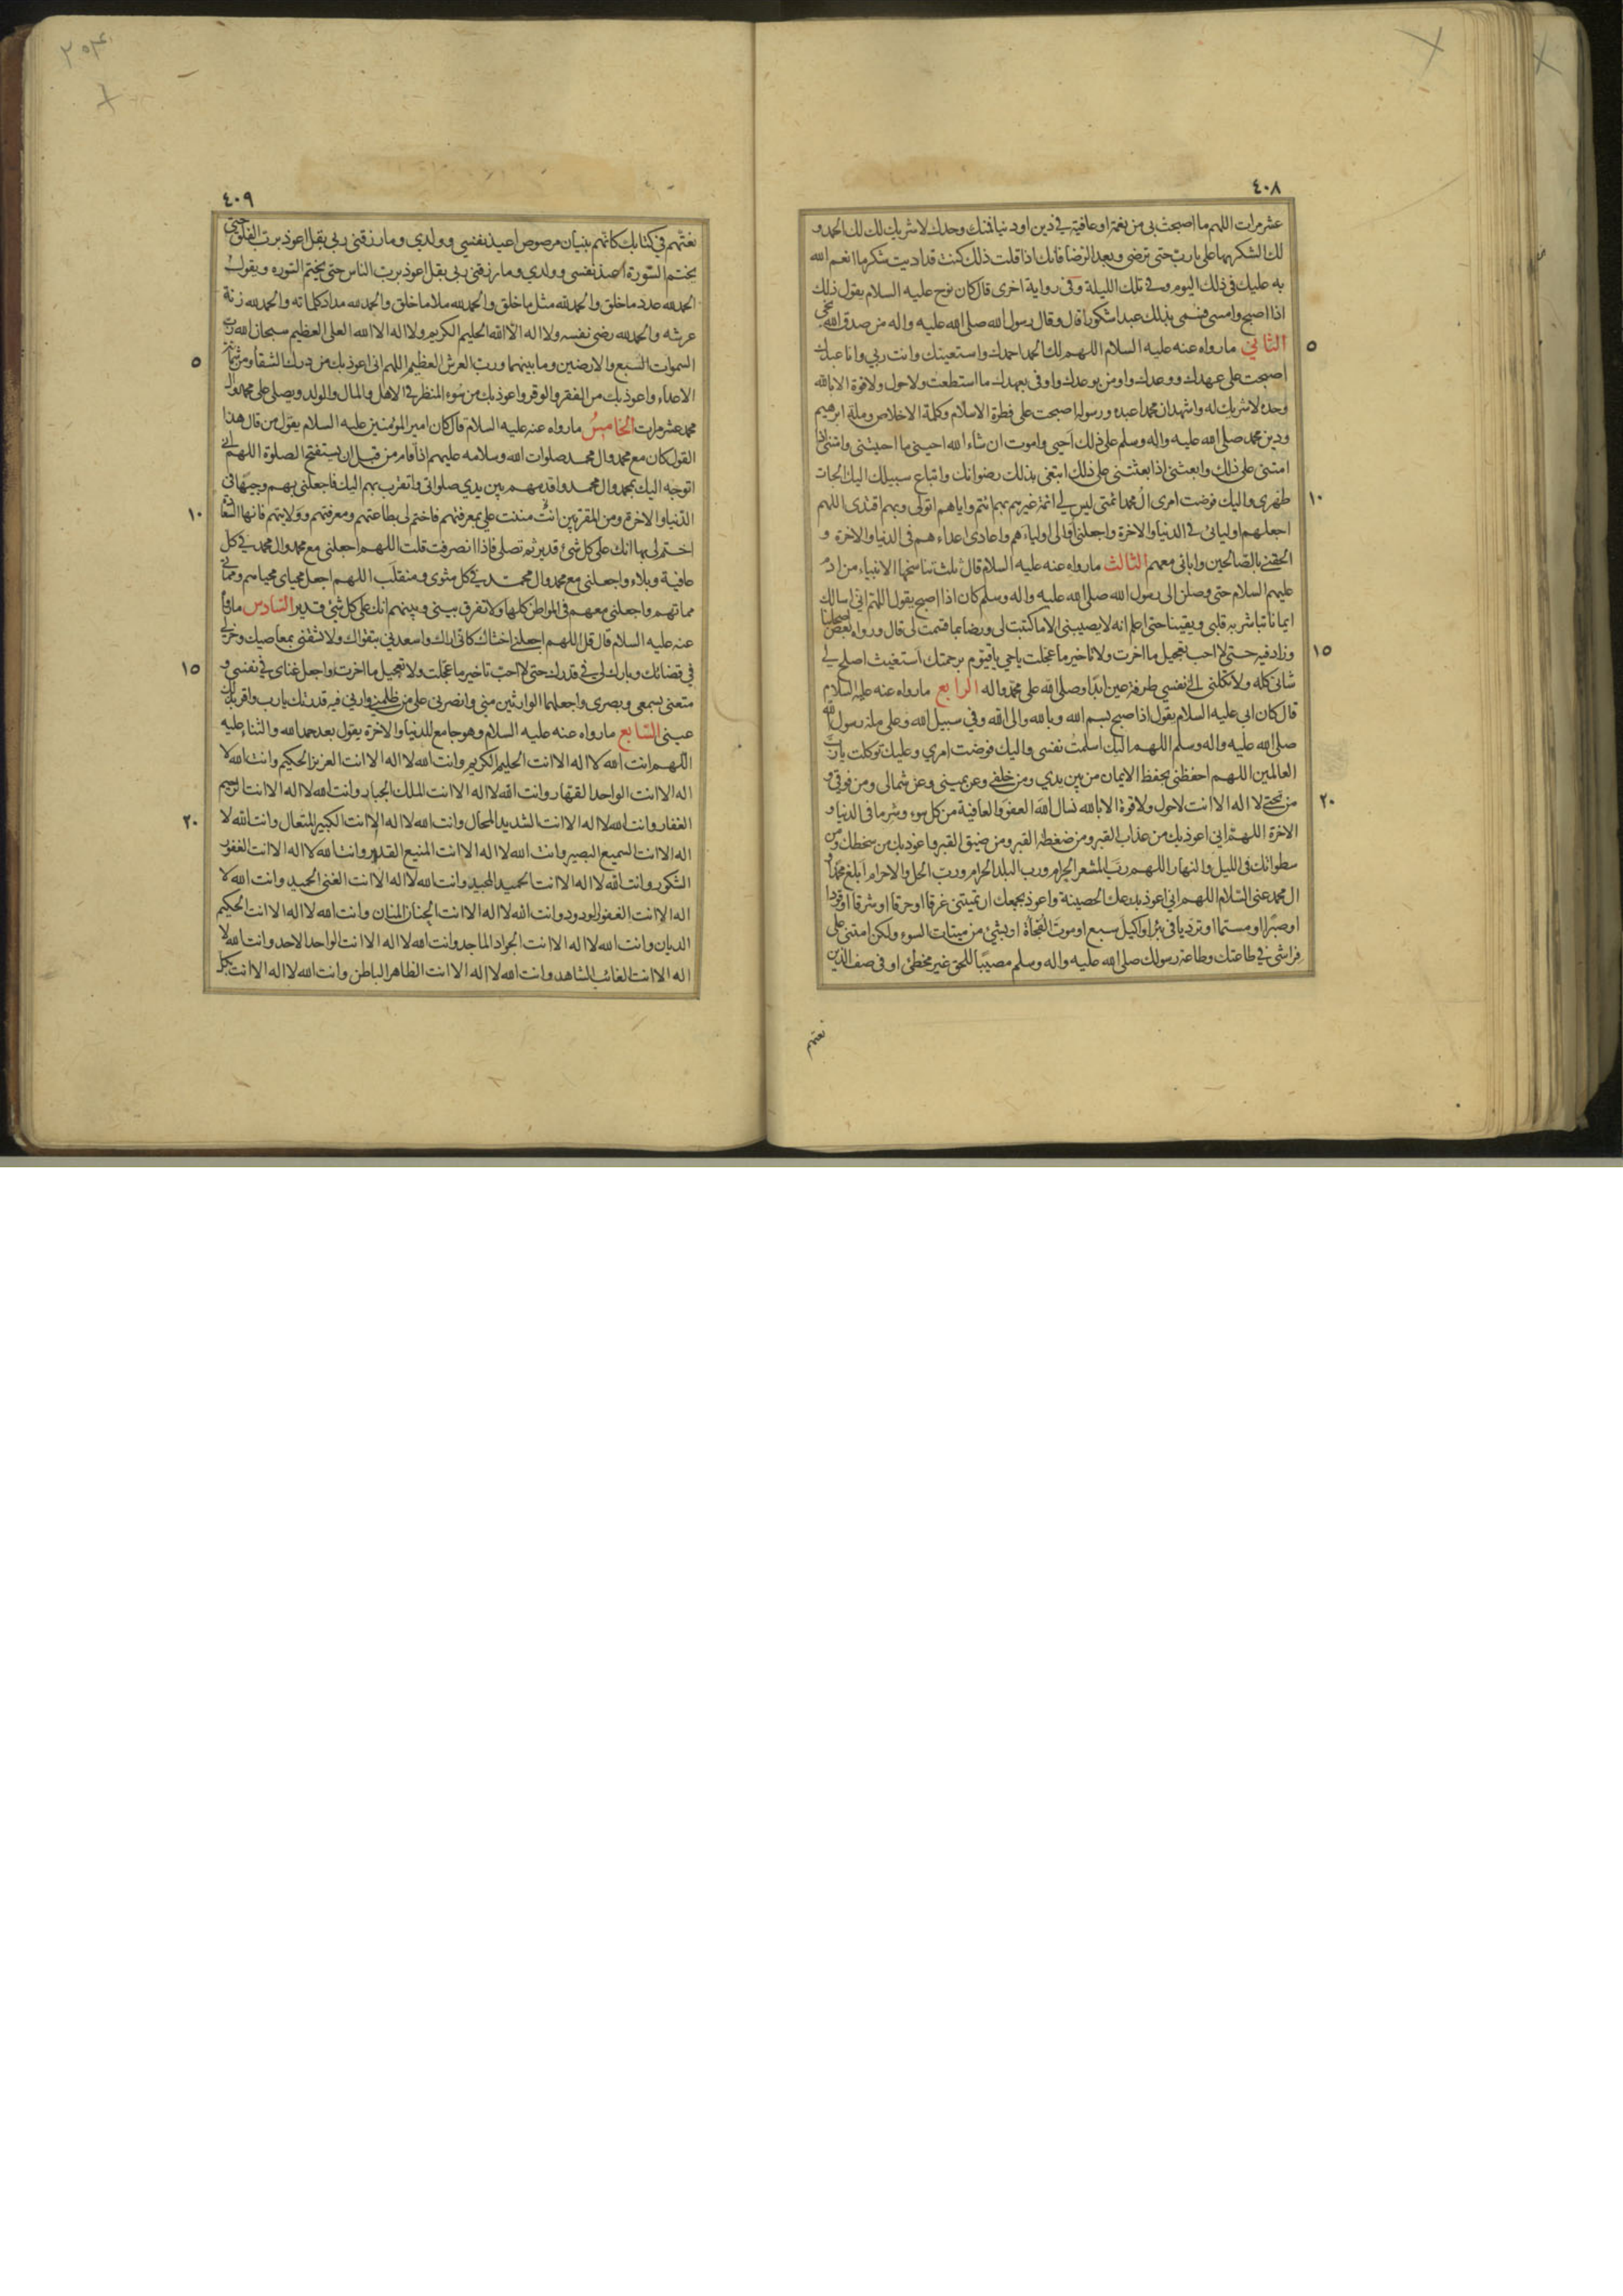 ٤٠٨
عشر مرات اللهم ما اصبحت بى من نعمة او عافية فى دين او دنيا فمنك وحدك لا شريك لك لك الحمد و
لك الشكر بها على يا رب حتى ترضى وبعد الرضا فانك اذا قلت ذلك كنت قد اديت شكر ما انعم الله
به عليك فى ذلك اليوم وفى تلك الليلة وفى رواية اخرى قال كان نوح عليه السلام يقول ذلك
اذا اصبح وامسى فسمى بذلك عبدا شكورا قال وقال رسول الله صلى الله عليه واله من صدق الله نجى
٥
الثانى ما رواه عنه عليه السلام اللهم لك الحمد احمدك واستعينك وانت ربى وانا عبدك
اصبحت على عهدك ووعدك واومن بوعدك واوفى بعهدك ما استطعت ولا حول ولا قوة الا بالله
وحده لا شريك له واشهد ان محمدا عبده ورسوله اصبحت على فطرة الاسلام وكلمة الاخلاص وملة ابرهيم
ودين محمد صلى الله عليه واله وسلم على ذلك احيى واموت ان شاء الله احينى ما احييتنى وامتنى اذا
امتنى على ذلك وابعثنى اذا بعثتنى على ذلك ابتغى بذلك رضوانك واتباع سبيلك اليك الجات
١٠
ظهرى واليك فوضت امرى ال محمد ائمتى ليس لى ائمة غيرهم بهم ائتم واياهم اتولى وبهم اقتدى اللهم
اجعلهم اوليائى فى الدنيا والاخرة واجعلنى اوالى اولياءهم واعادى اعداءهم فى الدنيا والاخرة و
الحقنى بالصالحين واباى معهم الثالث ما رواه عنه عليه السلام قال ثلث تناسخها الانبياء من ادم
عليهم السلام حتى وصلن الى رسول الله صلى الله عليه واله وسلم كان اذا اصبح يقول اللهم انى اسالك
ايمانا تباشر به قلبى ويقينا حتى اعلم انه لا يصيبنى الا ما كتبت لى ورضا بما قسمت لى قال ورواه بعض اصحابنا
١٥
وزاد فيه حتى لا احب تعجيل ما اخرت ولا تاخير ما عجلت يا حى يا قيوم برحمتك استغيث اصلح لى
شانى كله ولا تكلنى الى نفسى طرفة عين ابدا وصلى الله على محمد واله الرابع ما رواه عنه عليه السلام
قال كان ابى عليه السلام يقول اذا اصبح بسم الله وبالله والى الله وفى سبيل الله وعلى ملة رسول الله
صلى الله عليه واله وسلم اللهم اليك اسلمت نفسى واليك فوضت امرى وعليك توكلت يا رب
العالمين اللهم احفظنى بحفظ الايمان من بين يدى ومن خلفى وعن يمينى وعن شمالى ومن فوقى و
٢٠
من تحتى لا اله الا انت لا حول ولا قوة الا بالله نسال الله العفو والعافية من كل سوء وشر ما فى الدنيا و
الاخرة اللهم انى اعوذ بك من عذاب القبر ومن ضغطة القبر ومن ضيق القبر واعوذ بك من سخطك ومن
سطواتك فى الليل والنهار اللهم رب المشعر الحرام ورب البلد الحرام ورب الحل والاحرام ابلغ محمدا و
ال محمد عنى السلام اللهم انى اعوذ بدرعك الحصينة واعوذ بجمعك ان تميتنى غرقا او حرقا او شرقا او قودا
او صبرا او مستما او ترديا فى بئر او اكيل سبع او موت الفجاة او بشئ من ميتات السوء ولكن امتنى على
فراشى فى طاعتك وطاعة رسولك صلى الله عليه واله وسلم مصيبا للحق غير مخطئ او فى صف الذين
نعتهم
٢٠٤
٤٠٩
نعتهم فى كتابك كانهم بنيان مرصوص اعيذ نفسى وولدى وما رزقنى ربى بقل اعوذ برب الفلق حتى
يختم السورة اعيذ نفسى وولدى وما رزقنى ربى بقل اعوذ برب الناس حتى يختم السورة ويقول
الحمد لله عدد ما خلق والحمد لله مثل ما خلق والحمد لله ملا ما خلق والحمد لله مداد كلماته والحمد لله زنة
عرشه والحمد لله رضى نفسه ولا اله الا الله الحليم الكريم ولا اله الا الله العلى العظيم سبحان الله رب
٥
السموات السبع والارضين وما بينهما ورب العرش العظيم اللهم انى اعوذ بك من درك الشقاء ومن شماتة
الاعداء واعوذ بك من الفقر والوقر واعوذ بك من سوء المنظر فى الاهل والمال والولد ويصلى على محمد وال
محمد عشر مرات الخامس ما رواه عنه عليه السلام قال كان امير المؤمنين عليه السلام يقول من قال هذا
القول كان مع محمد وال محمد صلوات الله وسلامه عليهم اذا قام من قبل ان يستفتح الصلوة اللهم انى
اتوجه اليك بمحمد وال محمد واقدمهم بين يدى صلواتى واتقرب بهم اليك فاجعلنى بهم وجيها فى
١٠
الدنيا والاخرة ومن المقربين انت مننت على بمعرفتهم فاختم لى بطاعتهم ومعرفتهم وولايتهم فانها السعادة
اختم لى بها انك على كل شئ قدير ثم تصلى فاذا انصرفت قلت اللهم اجعلنى مع محمد وال محمد فى كل
عافية وبلاء واجعلنى مع محمد وال محمد فى كل مثوى ومنقلب اللهم اجعل محياى محياهم ومماتى
مماتهم واجعلنى معهم فى المواطن كلها ولا تفرق بينى وبينهم انك على كل شئ قدير السادس ما رواه
عنه عليه السلام قال قل اللهم اجعلنى اخشاك كانى اراك واسعدنى بتقواك ولا تشقنى بمعاصيك وخر لى
١٥
فى قضائك وبارك لى فى قدرك حتى لا احب تاخير ما عجلت ولا تعجيل ما اخرت واجعل غناى فى نفسى و
متعنى بسمعى وبصرى واجعلهما الوارثين منى وانصرنى على من ظلمنى وارنى فيه قدرتك يا رب واقر بذلك
عينى السابع ما رواه عنه عليه السلام وهو جامع للدنيا والاخرة يقول بعد حمد الله والثناء عليه
اللهم انت الله لا اله الا انت الحليم الكريم وانت الله لا اله الا انت العزيز الحكيم وانت الله لا
اله الا انت الواحد القهار وانت الله لا اله الا انت الملك الجبار وانت الله لا اله الا انت الرحيم
٢٠
الغفار وانت الله لا اله الا انت الشديد المحال وانت الله لا اله الا انت الكبير المتعال وانت الله لا
اله الا انت السميع البصير وانت الله لا اله الا انت المنيع القدير وانت الله لا اله الا انت الغفور
الشكور وانت الله لا اله الا انت الحميد المجيد وانت الله لا اله الا انت الغنى الحميد وانت الله لا
اله الا انت الغفور الودود وانت الله لا اله الا انت الحنان المنان وانت الله لا اله الا انت الحكيم
الديان وانت الله لا اله الا انت الجواد الماجد وانت الله لا اله الا انت الواحد الاحد وانت الله لا
اله الا انت الغائب الشاهد وانت الله لا اله الا انت الظاهر الباطن وانت الله لا اله الا انت بكل